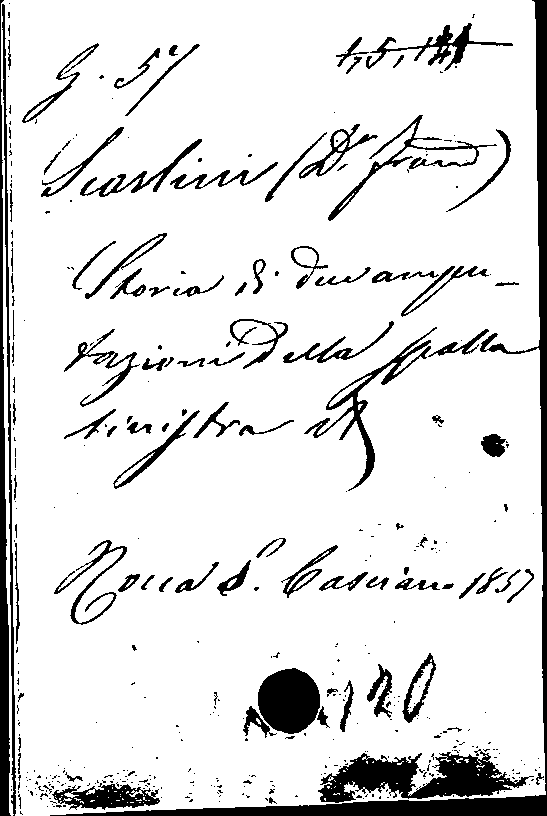 G. 57
Scarlini (D.r Franc)
Storia di due ampu-
tazioni della spalla
sinistra
Rocca S. Casciano 1857
120